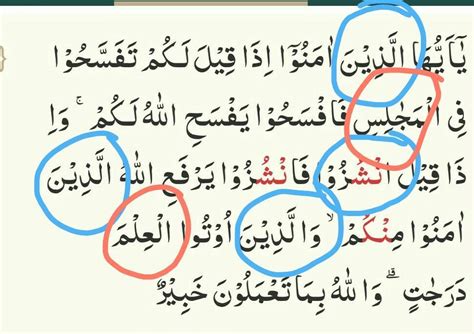 يٰٓاَيُّهَا الَّذِيْنَ اٰمَنُوْٓا اِذَا قِيْلَ لَكُمْ تَفَسَّحُوْا
فِى الْمَجٰلِسِ فَافْسَحُوْا يَفْسَحِ اللّٰهُ لَكُمْ ۚ وَاِ
ذَا قِيْلَ انْشُزُوْا فَانْشُزُوْا يَرْفَعِ اللّٰهُ الَّذِيْنَ
اٰمَنُوْا مِنْكُمْ ۙ وَالَّذِيْنَ اُوْتُوا الْعِلْمَ
دَرَجٰتٍ ۗ وَاللّٰهُ بِمَا تَعْمَلُوْنَ خَبِيْرٌ